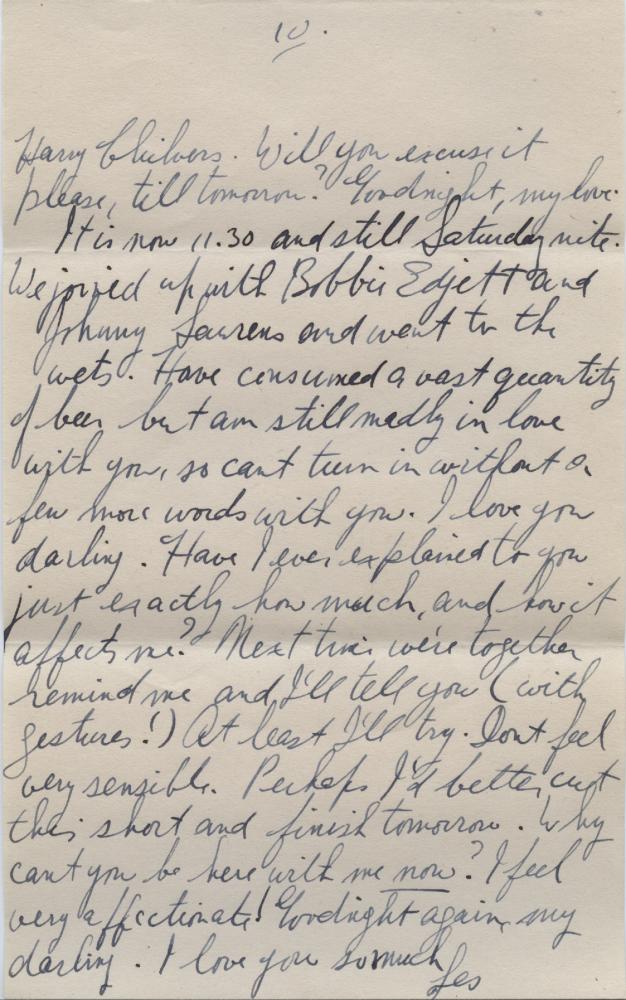 10.
Harry Chilvers. Will you excuse it
please, till tomorrow? Goodnight, my love.
It is now 11.30 and still Saturday nite.
We joined up with Bobbie Edjett and
Johnny Laurens and went to the
wets. Have consumed a vast quantity
of beer but am still madly in love
with you, so cant turn in without a
few more words with you. I love you
darling. Have I ever explained to you
just exactly how much, and how it
affects me? Next time we're together
remind me and I'll tell you (with
gestures!) At least I'll try. Dont feel
very sensible. Perhaps I'd better cut
this short and finish tomorrow. Why
cant you be here with me now? I feel
very affectionate! Goodnight again, my
darling. I love you so much
Les